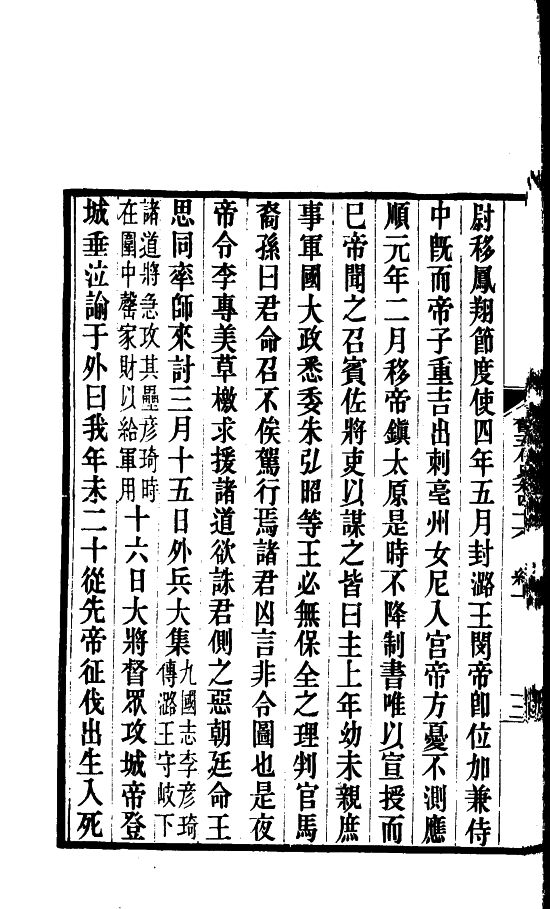 尉移鳳翔節度使四年五月封潞王閔帝卽位加兼侍
中旣而帝子重吉出刺亳州女尼入宮帝方憂不測應
順元年二月移帝鎭太原是時不降制書唯以宣授而
已帝聞之召賓佐將吏以謀之皆曰主上年幼未親庶
事軍國大政悉委朱弘昭等王必無保全之理判官馬
裔孫曰君命召不俟駕行焉諸君凶言非令圖也是夜
帝令李專美草檄求援諸道欲誅君側之惡朝廷命王
思同率師來討三月十五日外兵大集九國志李彥琦傳潞王守岐下
諸道將急攻其壘彥琦時在圍中罄家財以給軍用十六日大將督眾攻城帝登
城垂泣諭于外曰我年未二十從先帝征伐出生入死